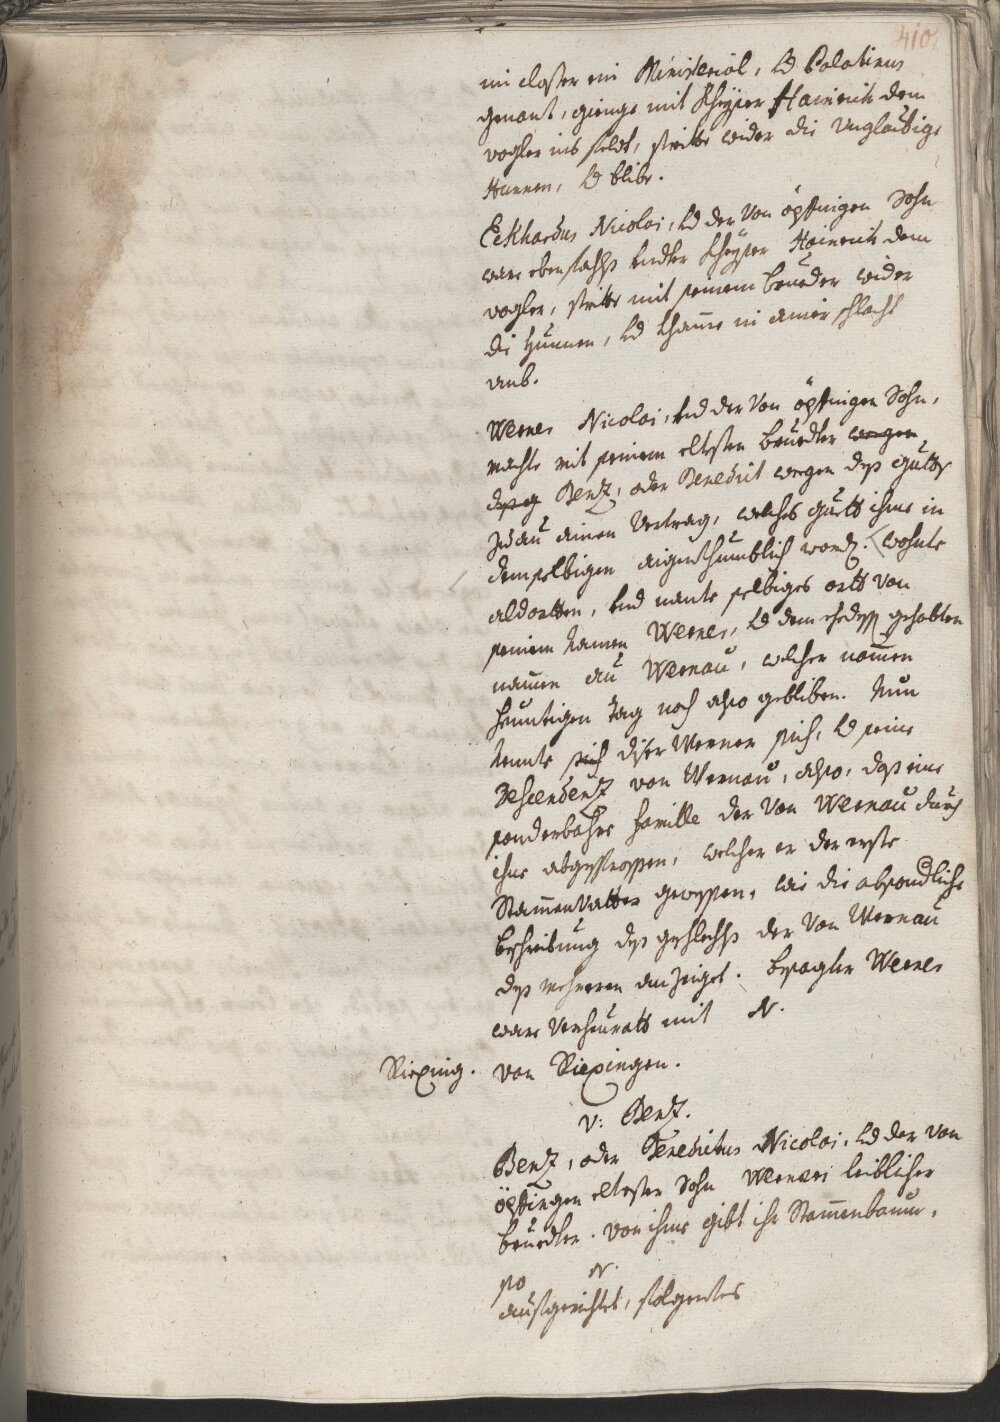 410
im closter ein Ministerial, Vd Palatinus
genant, gienge mit Kheyser Hainrich dem
vogler ins feldt, stritte wider die Unglaubige
Hunnen, Vd blibe.
Eckhardus Nicolai, Vd der Von öpfingen Sohn
ware ebenfahls under Kheyser Hainrich dem
vogler, stritte mit seinem brueder wider
die Hunnen, Vd khame in ainer schlacht
umb.
Werner Nicolai, Vnd der Von öpfingen Sohn,
machte mit seinem eltesten bruedter wegen
deß g Bentz, oder Benedict wegen deß guetts
zu au ainen Vertrag, welches guett ihme in
demselbigen aigenthumblich word. wohnte
aldortten, Vnd nante selbiges ortt von
seinem Namen Werner, Vd dem ehedeß gehabten
namen au Wernau, welcher nammen
heuntigen tag noch also gebliben. Nun
nente sich diser Werner sich, Vd seine
Descendentz von Wernau, also, daß eine
sonderbahre famille der Von Wernau durch
ihne abgesprossen, welcher er der erste
StammenVatter gewesen, wie die absondliche
beschreibung deß geschlechts der Von Wernau
deß mehreren anzeiget. besagter Werner
ware Verheuratt mit N.
Riexing. von Riexingen.
V: Bentz.
Bentz, oder Benedictus Nicolai, Vd der von
öpfingen eltester Sohn Werneri leiblicher
bruedter. von ihme gibt ihr Stammenbaum,
so N.
aufgerichtet, folgentes